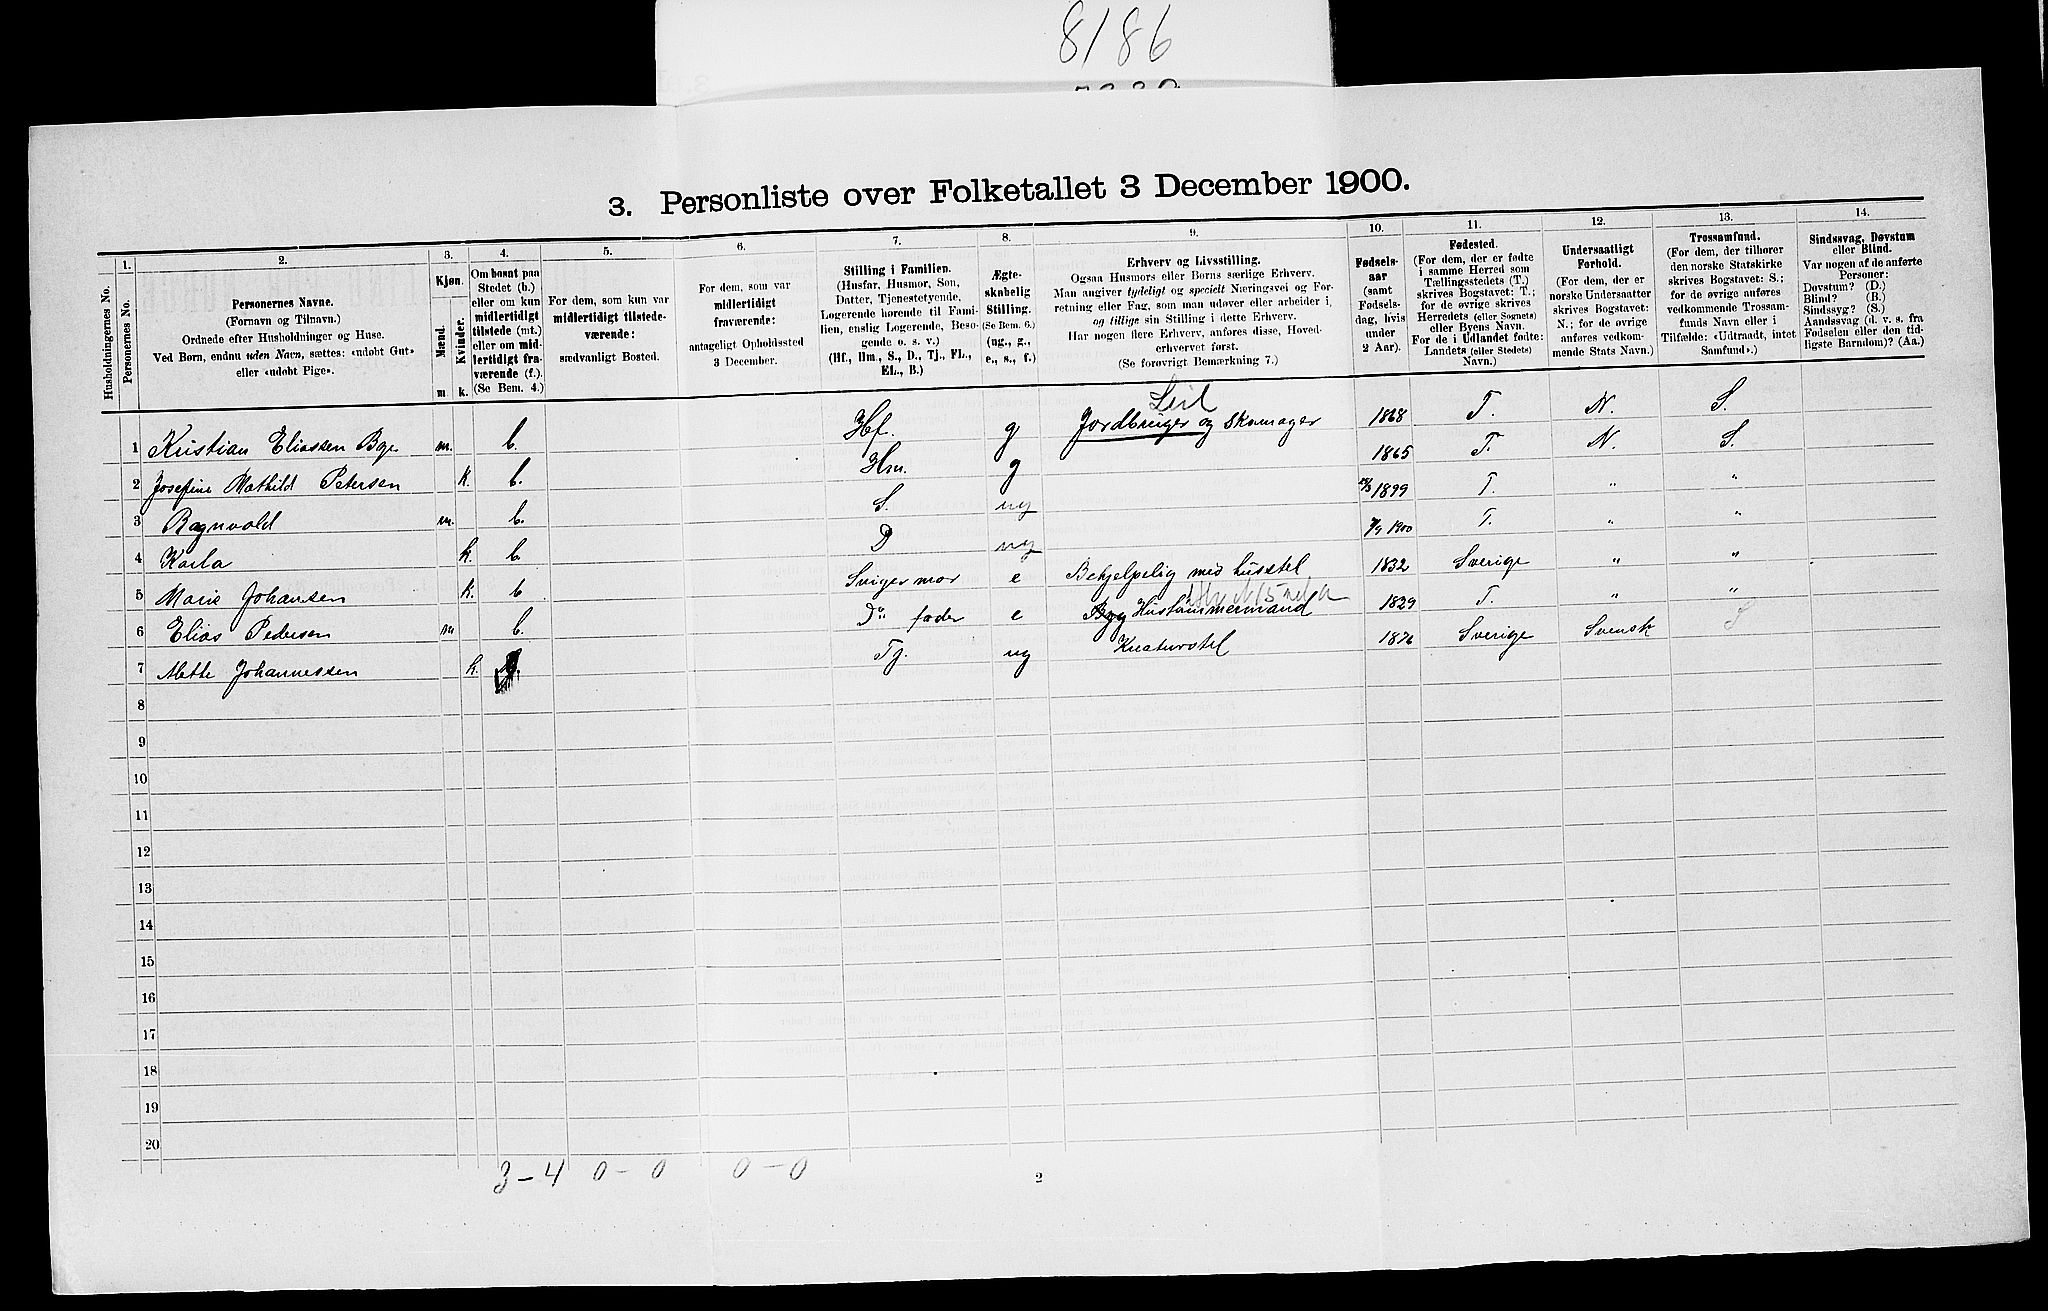 8186
3. Personliste over Folketallet 3 December 1900.
Husholdningernes No.
1.
Personernes No.
2.
Personernes Navne.
(Fornavn og Tilnavn.)
Ordnede efter Husholdninger og Huse.
Ved Børn, endnu uden Navn, sættes: «udøbt Gut»
eller «udøbt Pige».
3.
Kjøn.
Mænd.
Kvinder.
m. k.
4.
Om bosat paa
Stedet (b.)
eller om kun
midlertidigt
tilstede (mt.)
eller om mid-
lertidigt fra-
værende (f.).
(Se Bem. 4.)
5.
For dem, som kun var
midlertidigt tilstede-
værende:
sædvanligt Bosted.
6.
For dem, som var
midlertidigt
fraværende:
antageligt Opholdssted
3 December.
7.
Stilling i Familien.
(Husfar, Husmor, Søn,
Datter, Tjenestetyende,
Logerende hørende til Fami-
lien, enslig Logerende, Besø-
gende o. s. v.)
(Hf., Hm., S., D., Tj., FL.,
EL., B.)
8.
Ægte-
skabelig
Stilling.
(Se Bem. 6.)
(ug., g.,
e., s., f.)
9.
Erhverv og Livsstilling.
Ogsaa Husmors eller Børns særlige Erhverv.
Man angiver tydeligt og specielt Næringsvei og For-
retning eller Fag, som man udøver eller arbeider i,
og tillige sin Stilling i dette Erhverv.
Har nogen flere Erhverv, anføres disse, Hoved-
erhvervet først.
(Se forøvrigt Bemærkning 7.)
10.
Fødsels-
aar
(samt
Fødsels-
dag, hvis
under
2 Aar).
11.
Fødested.
(For dem, der er fødte
i samme Herred som
Tællingsstedets (T.)
skrives Bogstavet: T.;
for de øvrige skrives
Herredets (eller Sognets)
eller Byens Navn.
For de i Udlandet fødte:
Landets (eller Stedets)
Navn.)
12.
Undersaatligt
Forhold.
(For dem, der er
norske Undersaatter
skrives Bogstavet:
N.; for de øvrige
anføres vedkom-
mende Stats Navn.)
13.
Trossamfund.
(For dem, der tilhører
den norske Statskirke
skrives Bogstavet: S.;
for de øvrige anføres
vedkommende Trossam-
funds Navn eller i
Tilfælde: «Udtraadt, intet
Samfund».)
14.
Sindssvag, Døvstum
eller Blind.
Var nogen af de anførte
Personer:
Døvstum? (D.)
Blind? (B.)
Sindssyg? (S.)
Aandssvag (d. v. s. fra
Fødselen eller den tid-
ligste Barndom)? (Aa.)
1 Kristian Eliassen m. b. Hf. g Jordbruger og Skomager 1868 T. N. S.
2 Josefine Mathild Petersen k. b. Hm. g 1865 T. N. S.
3 Ragnvald m. b. S. ug 1899 T. " "
4 Karla k. b. D ug 1900 T. " "
5 Marie Johansen k. b Svigermor e Behjelpelig med husstel 1832 Sverige " "
6 Elias Pedersen m b. Do fader e Hustømmermand 1829 T. " "
7 Mette Johannessen k. Tj. ug Kreaturstel 1876 Sverige Svensk S
8
9
10
11
12
13
14
15
16
17
18
19
20
3-4 0-0 0-0
2